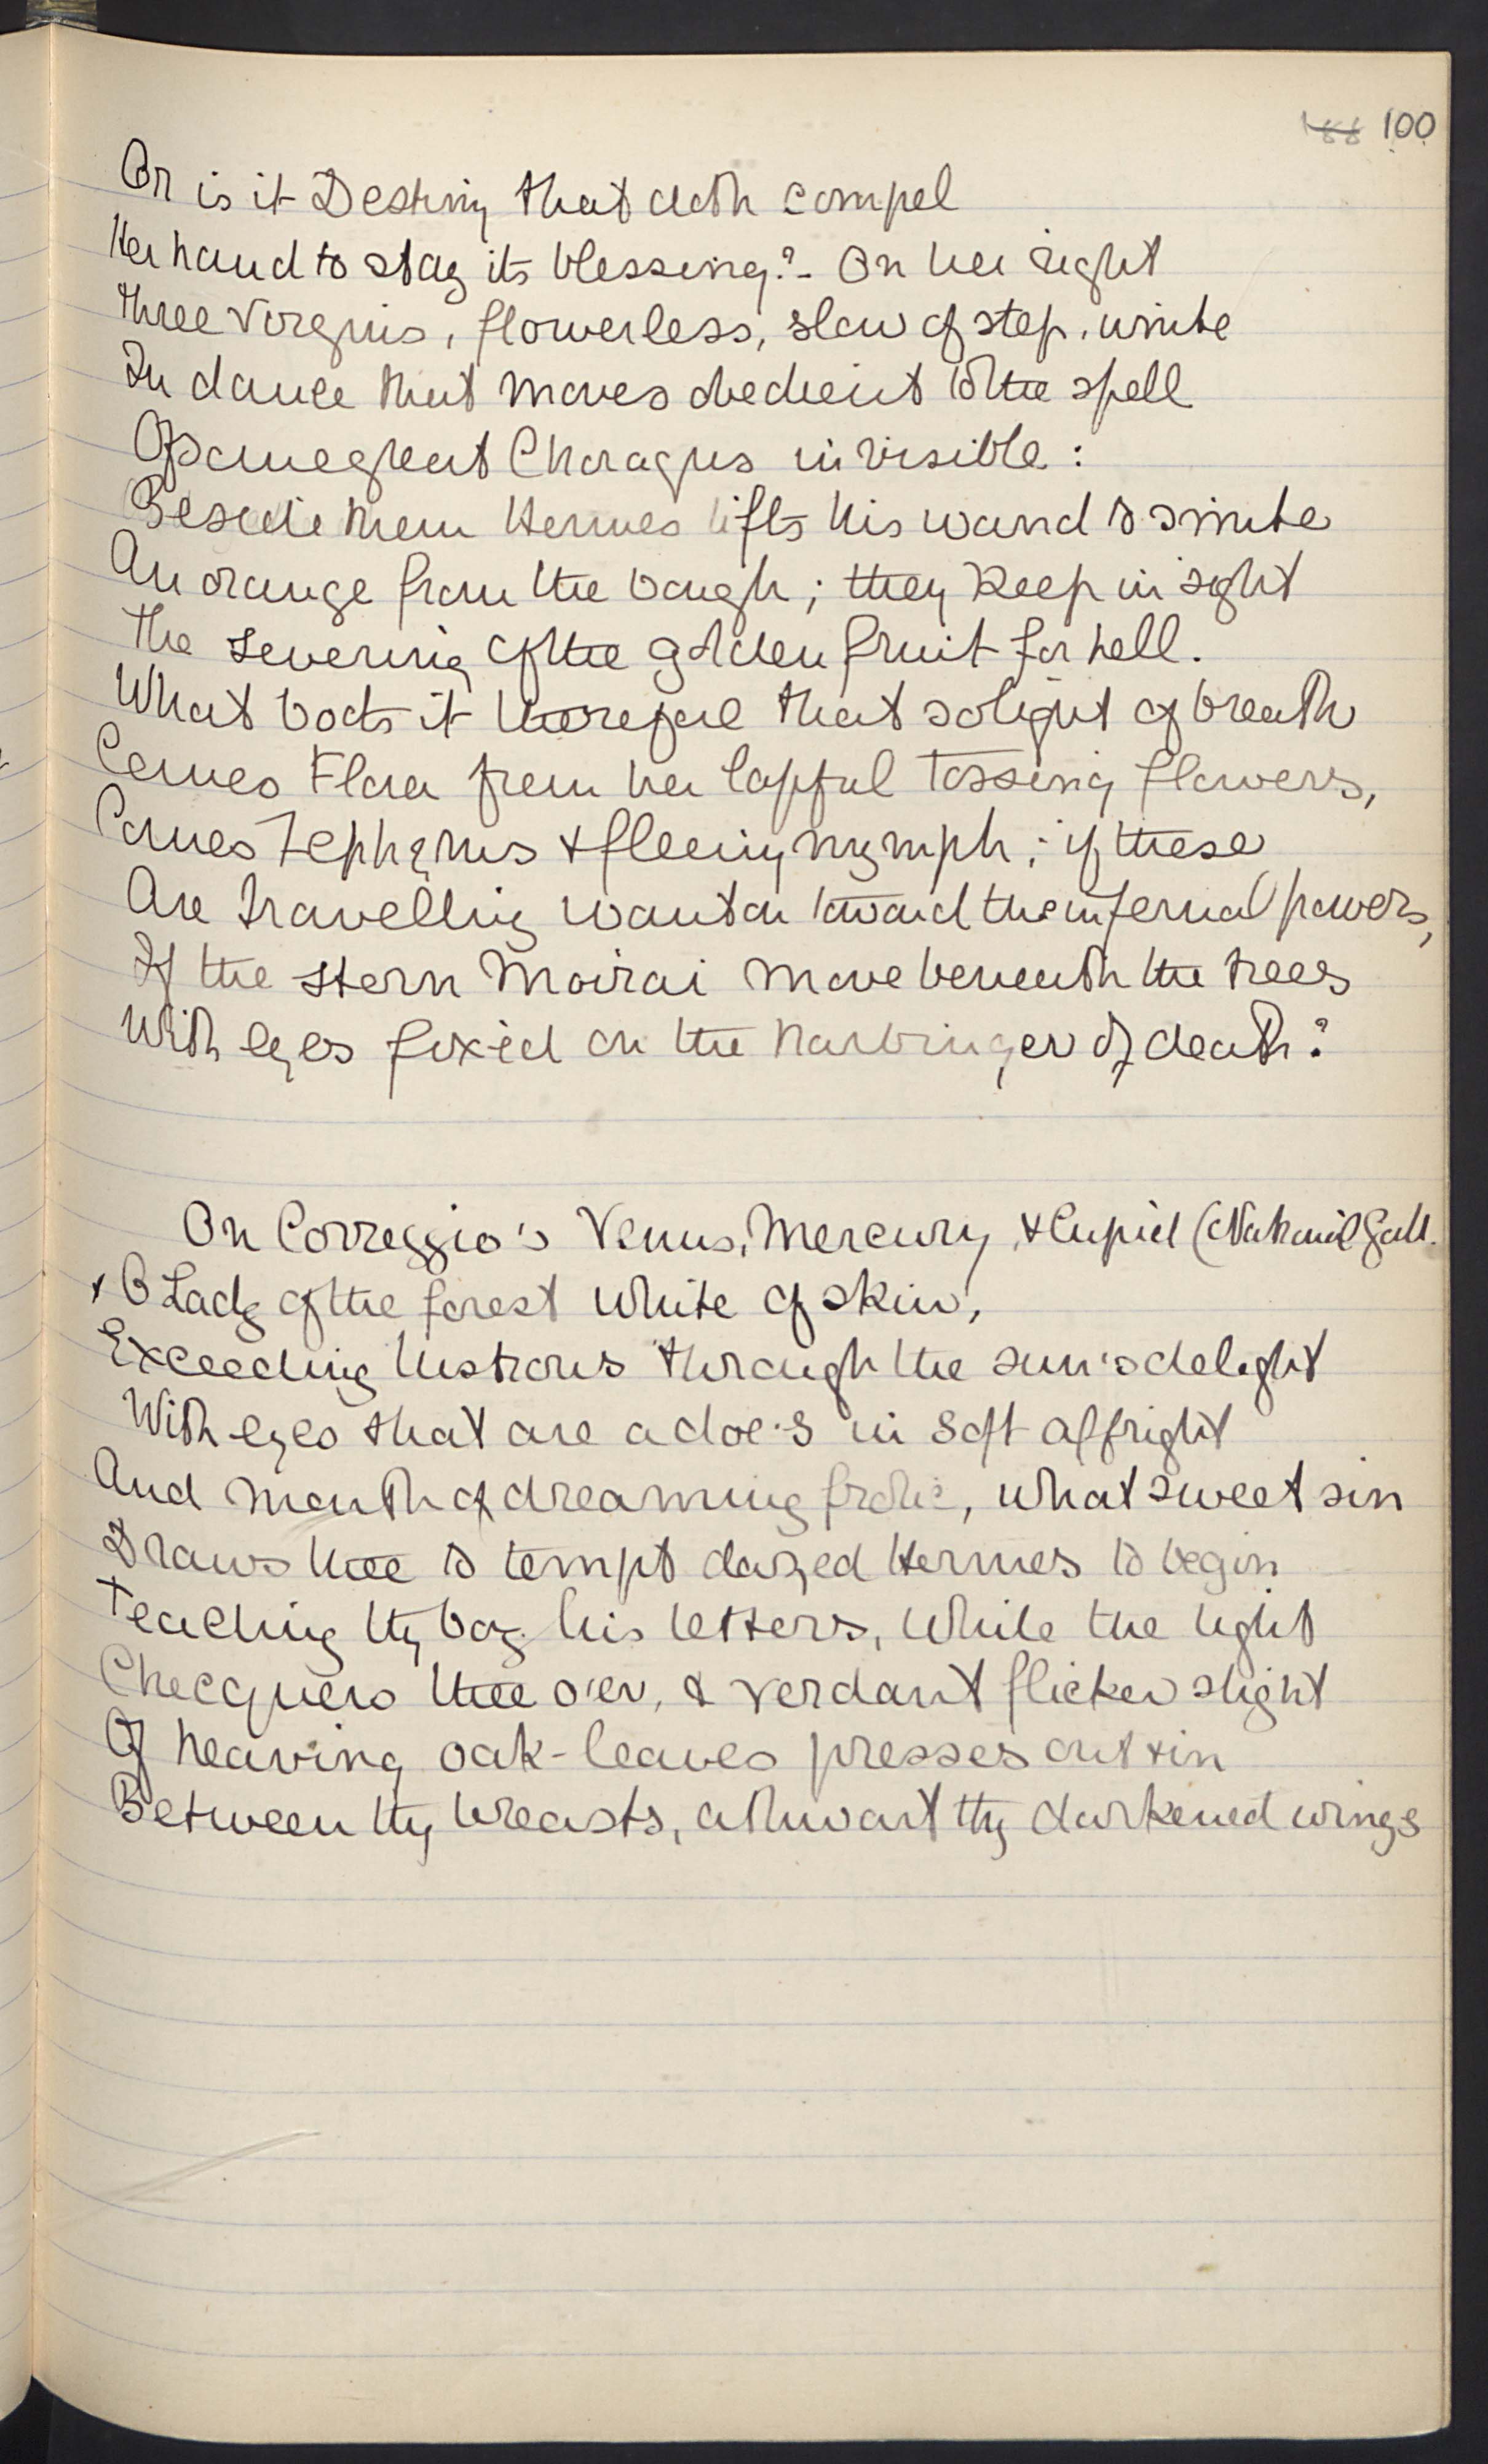 188 100
Or is it Destiny that doth compel
Her hand to stay its blessing? - On her right
Three Virgins, flowerless, slow of step, unite
In dance that moves obedient to the spell
Of some great Choragus invisible:
Beside them Hermes lifts his wand to smite
An orange from the bough; they keep in sight
The severing of the golden fruit for hell.
What boots it therefore that so light of breath
Comes Flora from her lapful tossing flowers,
Comes Zephyrus & fleeing nymph; if these
Are travelling wanton toward the infernal powers,
If the stern Moirai move beneath the trees
With eyes fixèd on the harbinger of death?
On Correggio's Venus, Mercury, & Cupid (National Gall.
x O Lady of the forest white of skin,
Exceeding lustrous through the sun's delight
With eyes that are a doe's in soft affright
And mouth of dreaming frolic, what sweet sin
Draws thee to tempt dazed Hermes to begin
Teaching thy boy his letters, while the light
Checquers thee o'er, & verdant flicker slight
Of heaving oak-leaves presses out & in
Between thy breasts, athwart thy darkened wings